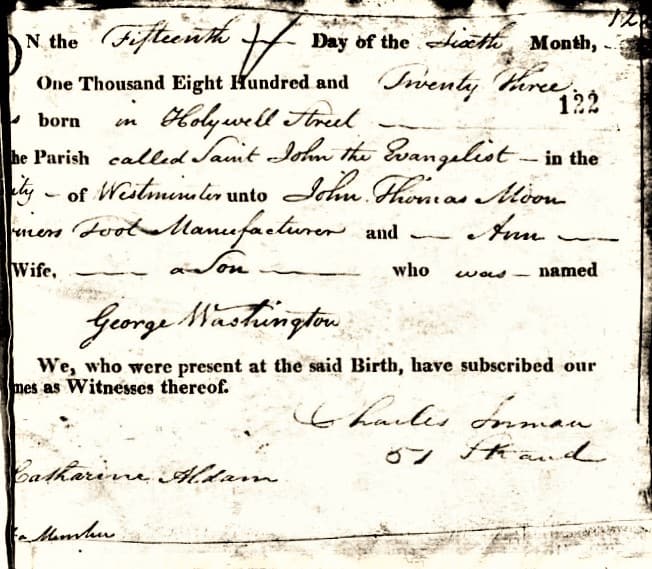 12
ON the Fifteenth Day of the Sixth Month,
One Thousand Eight Hundred and Twenty Three
122
s born in Holywell Street
he Parish called Saint John the Evangelist in the
ity of Westminster unto John Thomas Moon
riners Tool Manufacturer and Ann
Wife, a Son who was named
George Washington
We, who were present at the said Birth, have subscribed our
mes as Witnesses thereof.
Charles Inman
51 Strand
Catharine Aldam
a Member